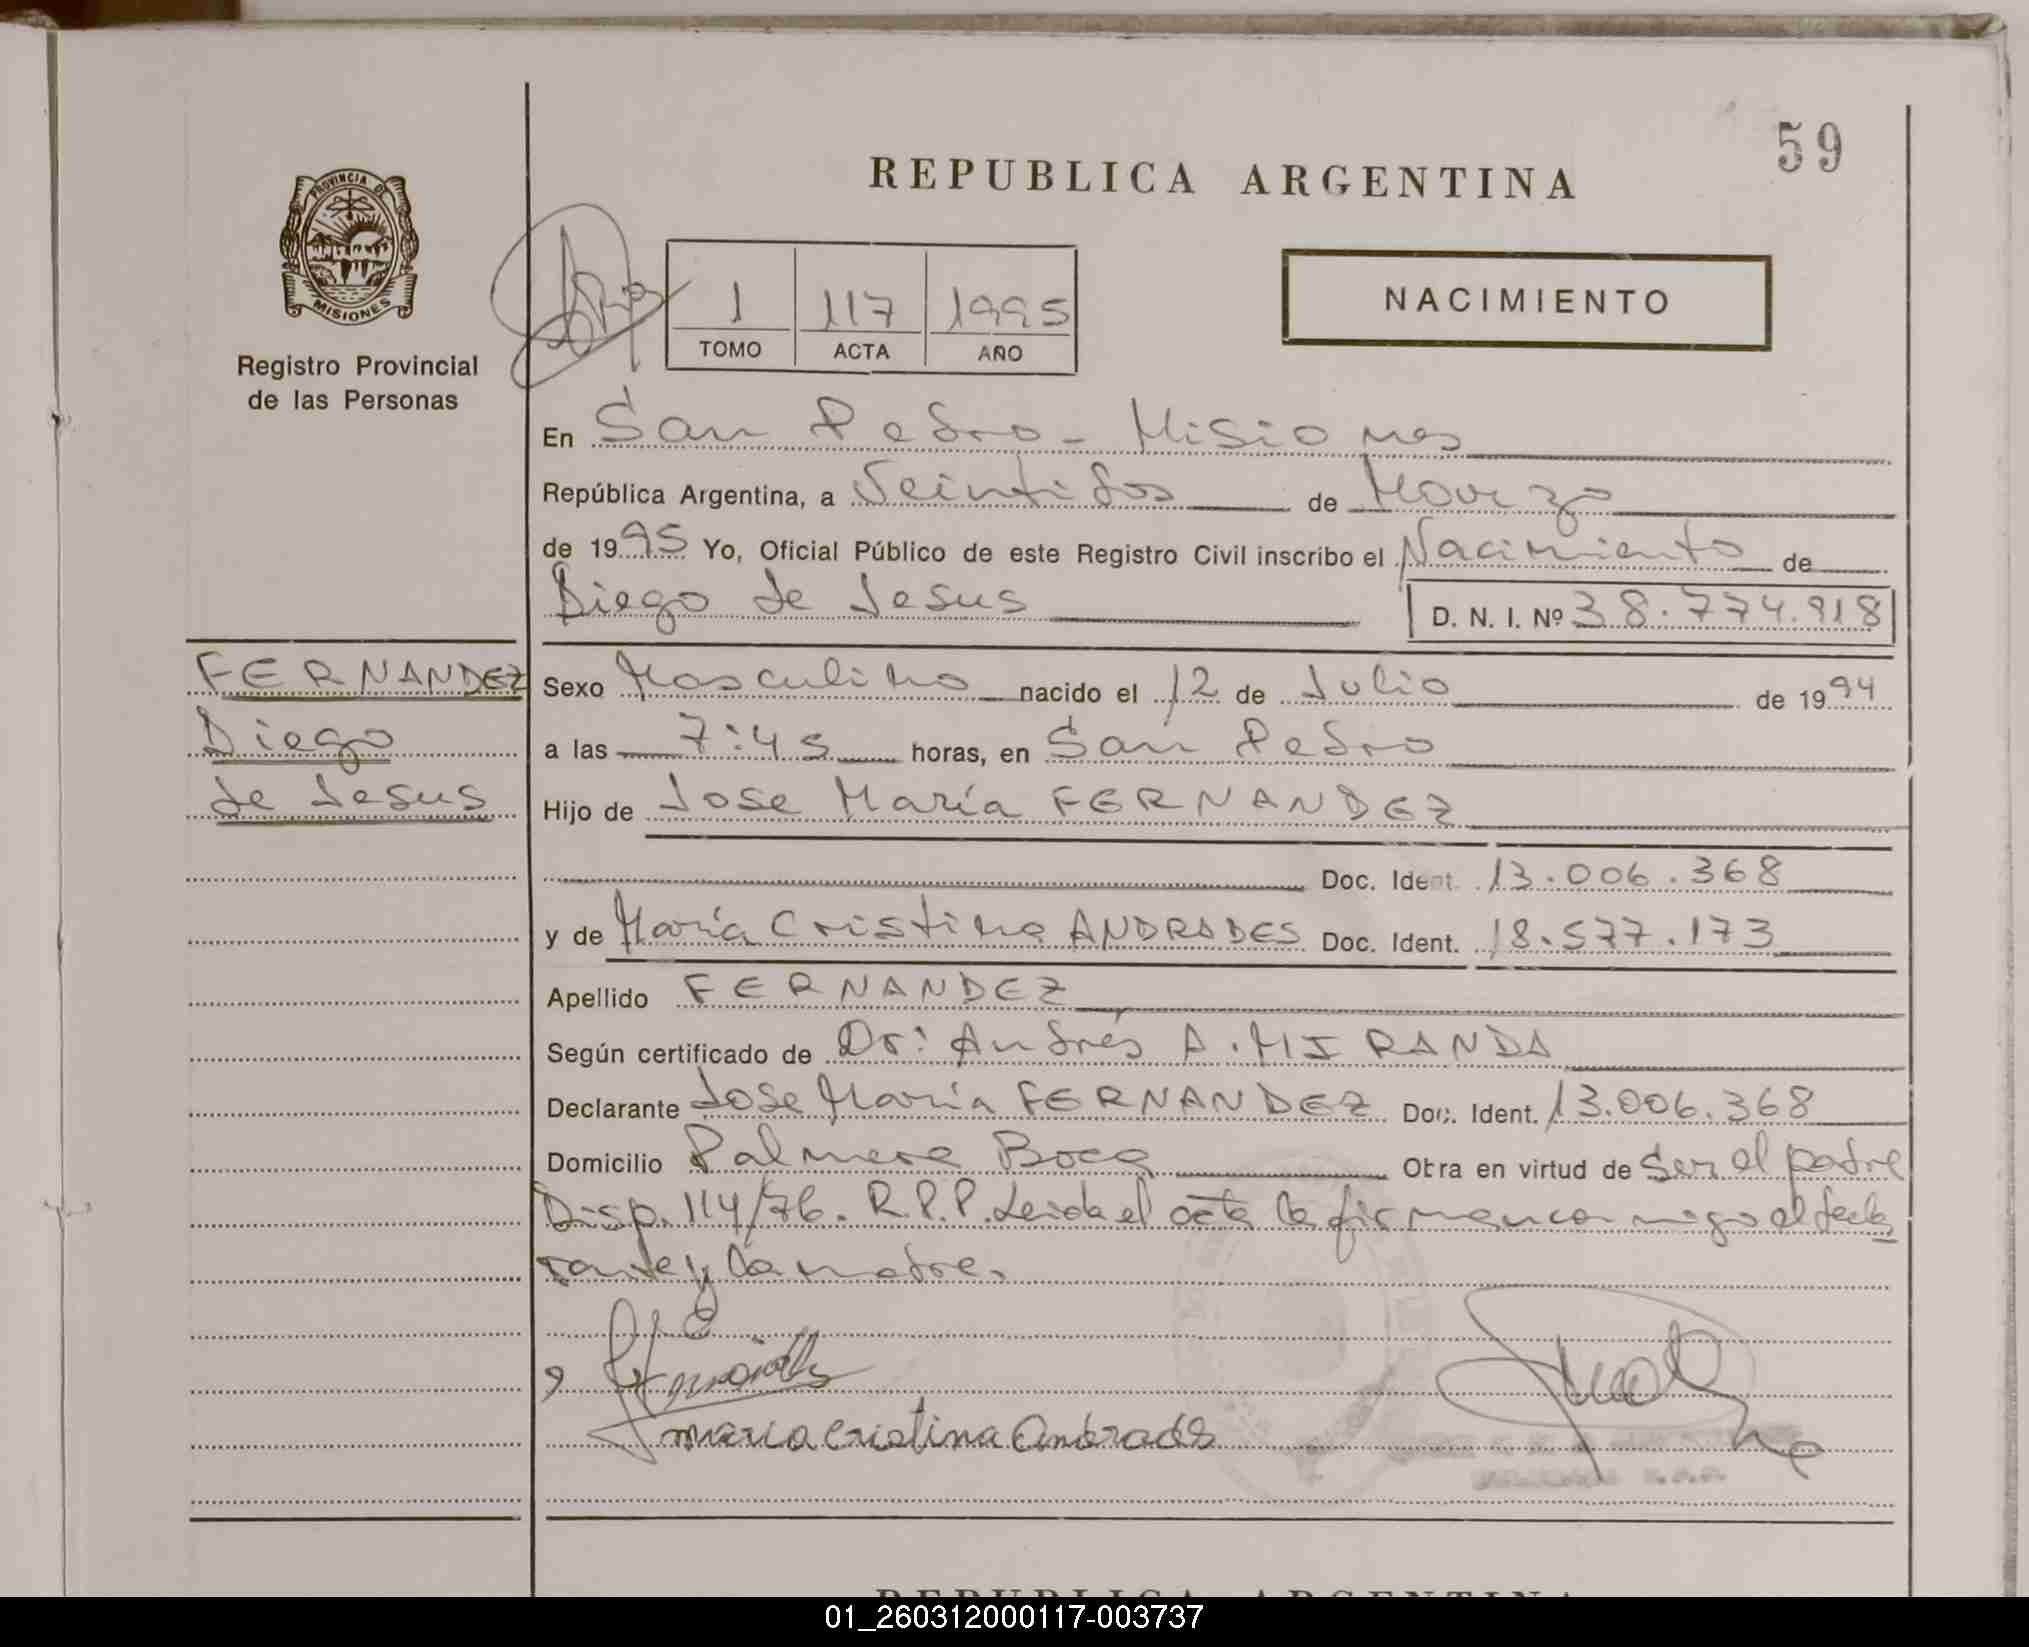 59
REPUBLICA ARGENTINA
PROVINCIA DE
MISIONES
Registro Provincial
de las Personas
1 117 1995
TOMO ACTA AÑO
NACIMIENTO
En San Pedro - Misiones
República Argentina, a Veintidos de Marzo
de 1995 Yo, Oficial Público de este Registro Civil inscribo el Nacimiento de
Diego de Jesus D. N. I. Nº 38.774.918
FERNANDEZ
Diego
de Jesus
Sexo Masculino nacido el 12 de Julio de 1994
a las 7:45 horas, en San Pedro
Hijo de Jose María FERNANDEZ
Doc. Ident. 13.006.368
y de María Cristina ANDRADES Doc. Ident. 18.577.173
Apellido FERNANDEZ
Según certificado de Dr: Andrés A. MIRANDA
Declarante Jose María FERNANDEZ Doc. Ident. 13.006.368
Domicilio Palmera Boca Obra en virtud de ser el padre
Disp. 114/76. R.P.P. Leida el acta la firman conmigo el decla
rante y la madre.
maria cristina Andrades
REPUBLICA ARGENTINA
01_260312000117-003737